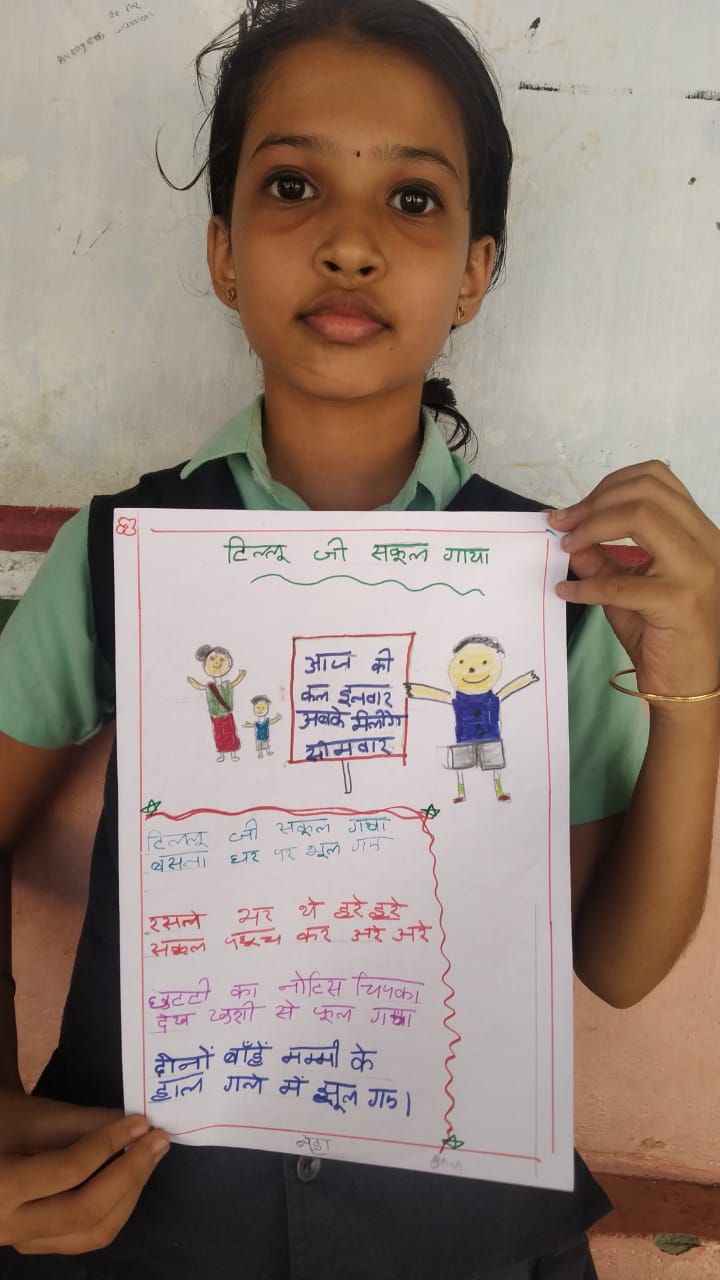 be the
Avengers warrior
टिल्लू जी सकूल गाया
आज की
कल इतवार
अबके मेलौगे
सोमवार
टिल्लू जी सकूल गया
बसता घर पर भूल गए
रसले भर थे डरे डरे
सकूल पहूच कर अरे अरे
छुटटी का नोटिस चिपका
देख खुशी से फूल गया
दोनों बाँहें मम्मी के
डाल गले में झूल गए।